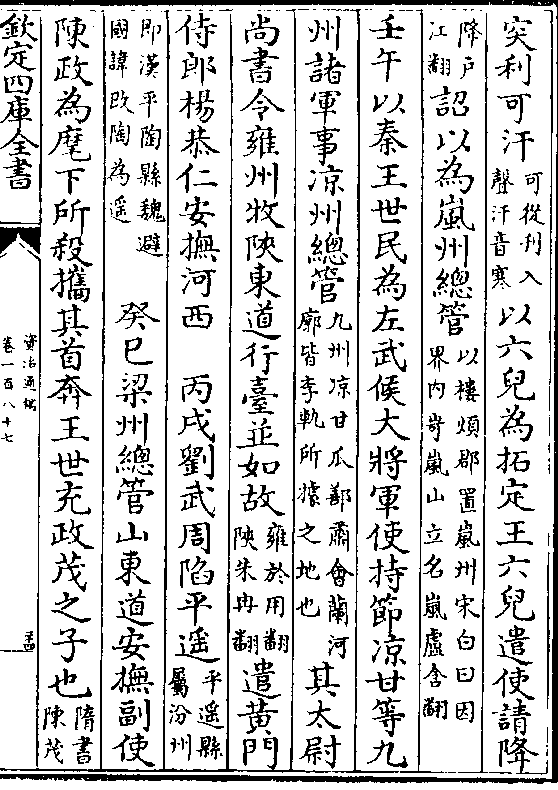 突利可汗可從刋入聲汗音寒以六兒為拓定王六兒遣使請降
降户江翻詔以為嵐州總管以樓煩郡置嵐州宋白曰因界内岢嵐山立名嵐盧含翻
壬午以秦王世民為左武候大將軍使持節凉甘等九
州諸軍事凉州總管九州凉甘瓜鄯肅會蘭河廓皆李軌所據之地也其太尉
尚書令雍州牧陜東道行臺並如故雍於用翻陜失冉翻遣黄門
侍郎楊恭仁安撫河西　丙戌劉武周陷平遥平遥縣屬汾州
即漢平陶縣魏避國諱改陶為遥　癸巳梁州總管山東道安撫副使
陳政為麾下所殺攜其首奔王世充政茂之子也隋書陳茂
欽定四庫全書
資治通鑑
卷一百八十七